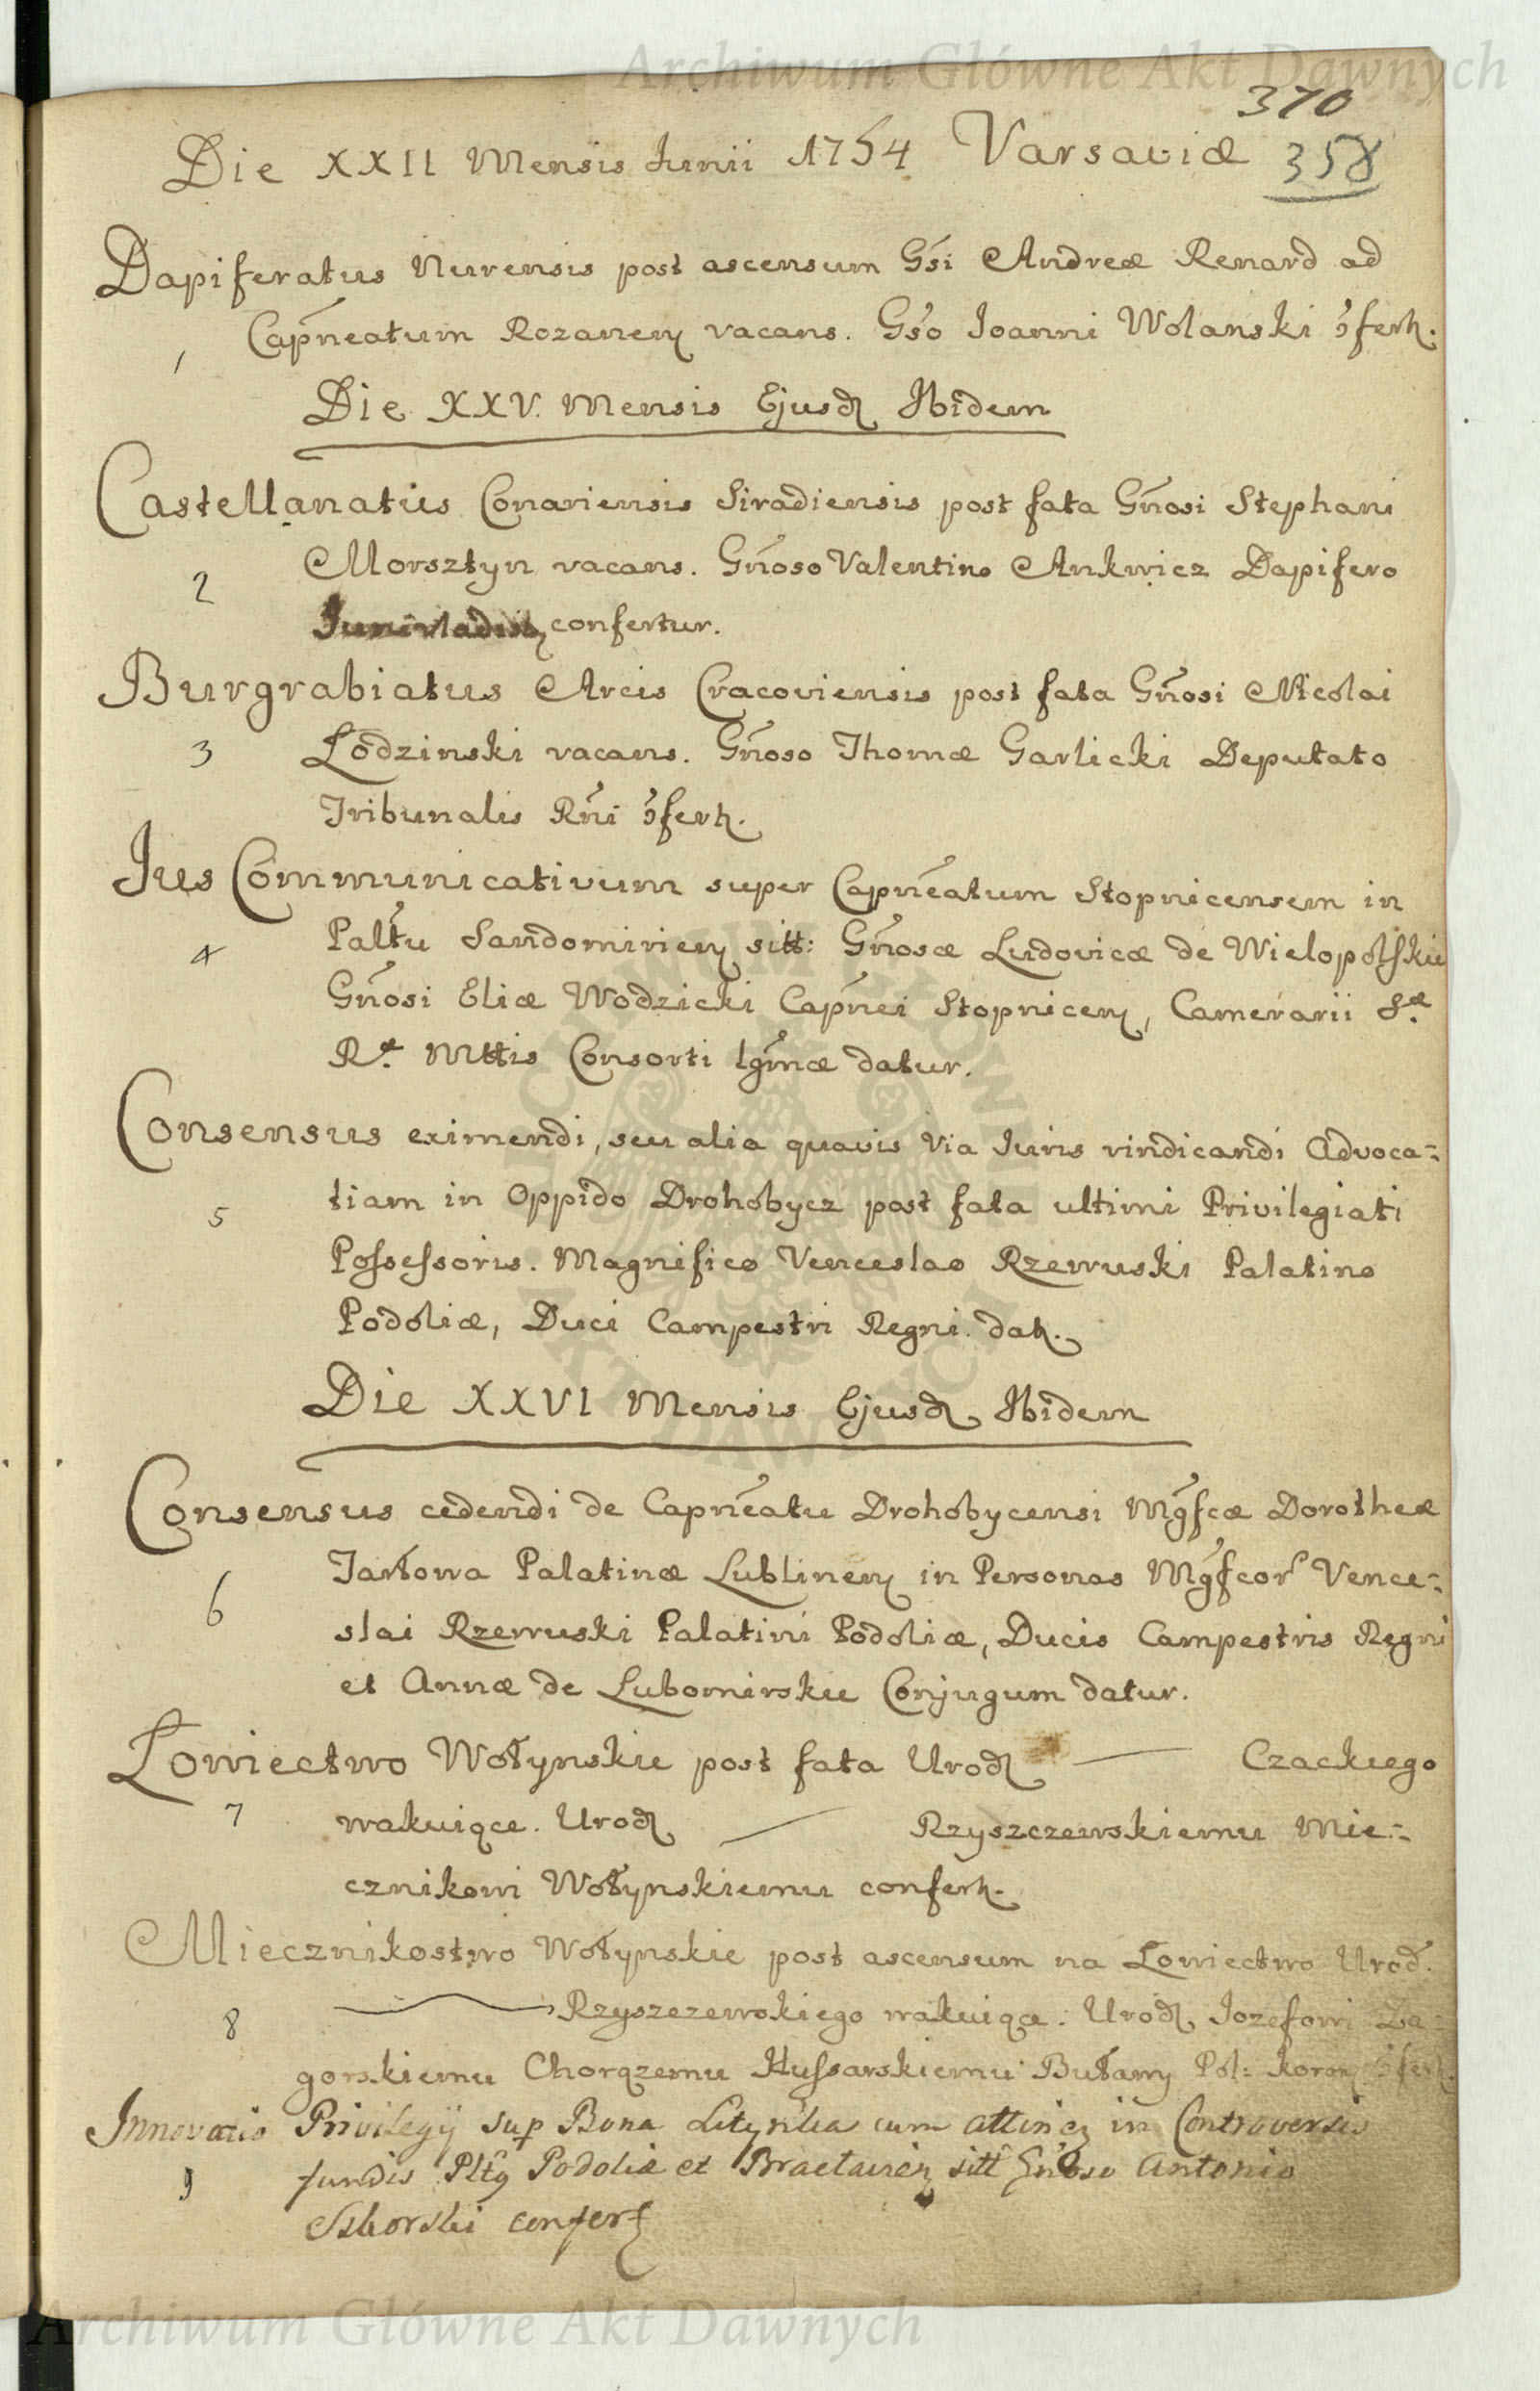 Archiwum Główne Akt Dawnych
370
Die XXII Mensis Junii 1754 Varsaviæ 358
Dapiferatus Nurensis post ascensum Gsi Andreæ Renard ad
1 Capneatum Rozanen vacans. Gso Joanni Wolanski ɔfert.
Die XXV. Mensis Ejusd Ibidem
Castellanatus Conariensis Siradiensis post fata Gnosi Stephani
2 Morsztyn vacans. Gnoso Valentino Ankwicz Dapifero
confertur.
Burgrabiatus Arcis Cracoviensis post fata Gnosi Nicolai
3 Łodzinski vacans. Gnoso Thomæ Garlicki Deputato
Tribunalis Rni ɔfert.
Jus Communicativum super Capneatum Stopnicensem in
4 Paltu Sandomirien sitt: Gnosæ Ludovicæ de Wielopolskie
Gnosi Eliæ Wodzicki Capnei Stopnicen, Camerarii Sæ
Ræ Mttis Consorti lgmæ datur.
Consensus eximendi, seu alia quavis via Juris vindicandi Advoca=
5 tiam in Oppido Drohobycz post fata ultimi Privilegiati
Possessoris. Magnifico Venceslao Rzewuski Palatino
Podoliæ, Duci Campestri Regni. dat.
Die XXVI Mensis Ejusd Ibidem
Consensus cedendi de Capneatu Drohobycensi Mgfcæ Dorotheæ
6 Tarłowa Palatinæ Lublinen in Personas Mgfcor Vence=
slai Rzewuski Palatini Podoliæ, Ducis Campestris Regni
et Annæ de Lubomirskie Conjugum datur.
Łowiectwo Wołynskie post fata Urod — Czackiego
7 wakuiące. Urod — Rzyszczewskiemu Mie=
cznikowi Wołynskiemu confert.
Miecznikostwo Wołynskie post ascensum na Łowiectwo Urod.
8 — Rzyszczewskiego wakuiące: Urod. Jozefowi Za=
gorskiemu Chorązemu Hussarskiemu Buławy Pol: Koron ɔfert.
Innovatio Privilegÿ sup Bona Litynka cum attinen in Controversis
9 fundis Pltg Podoliæ et Braclavien sitt Gnoso Antonio
confert
Archiwum Główne Akt Dawnych